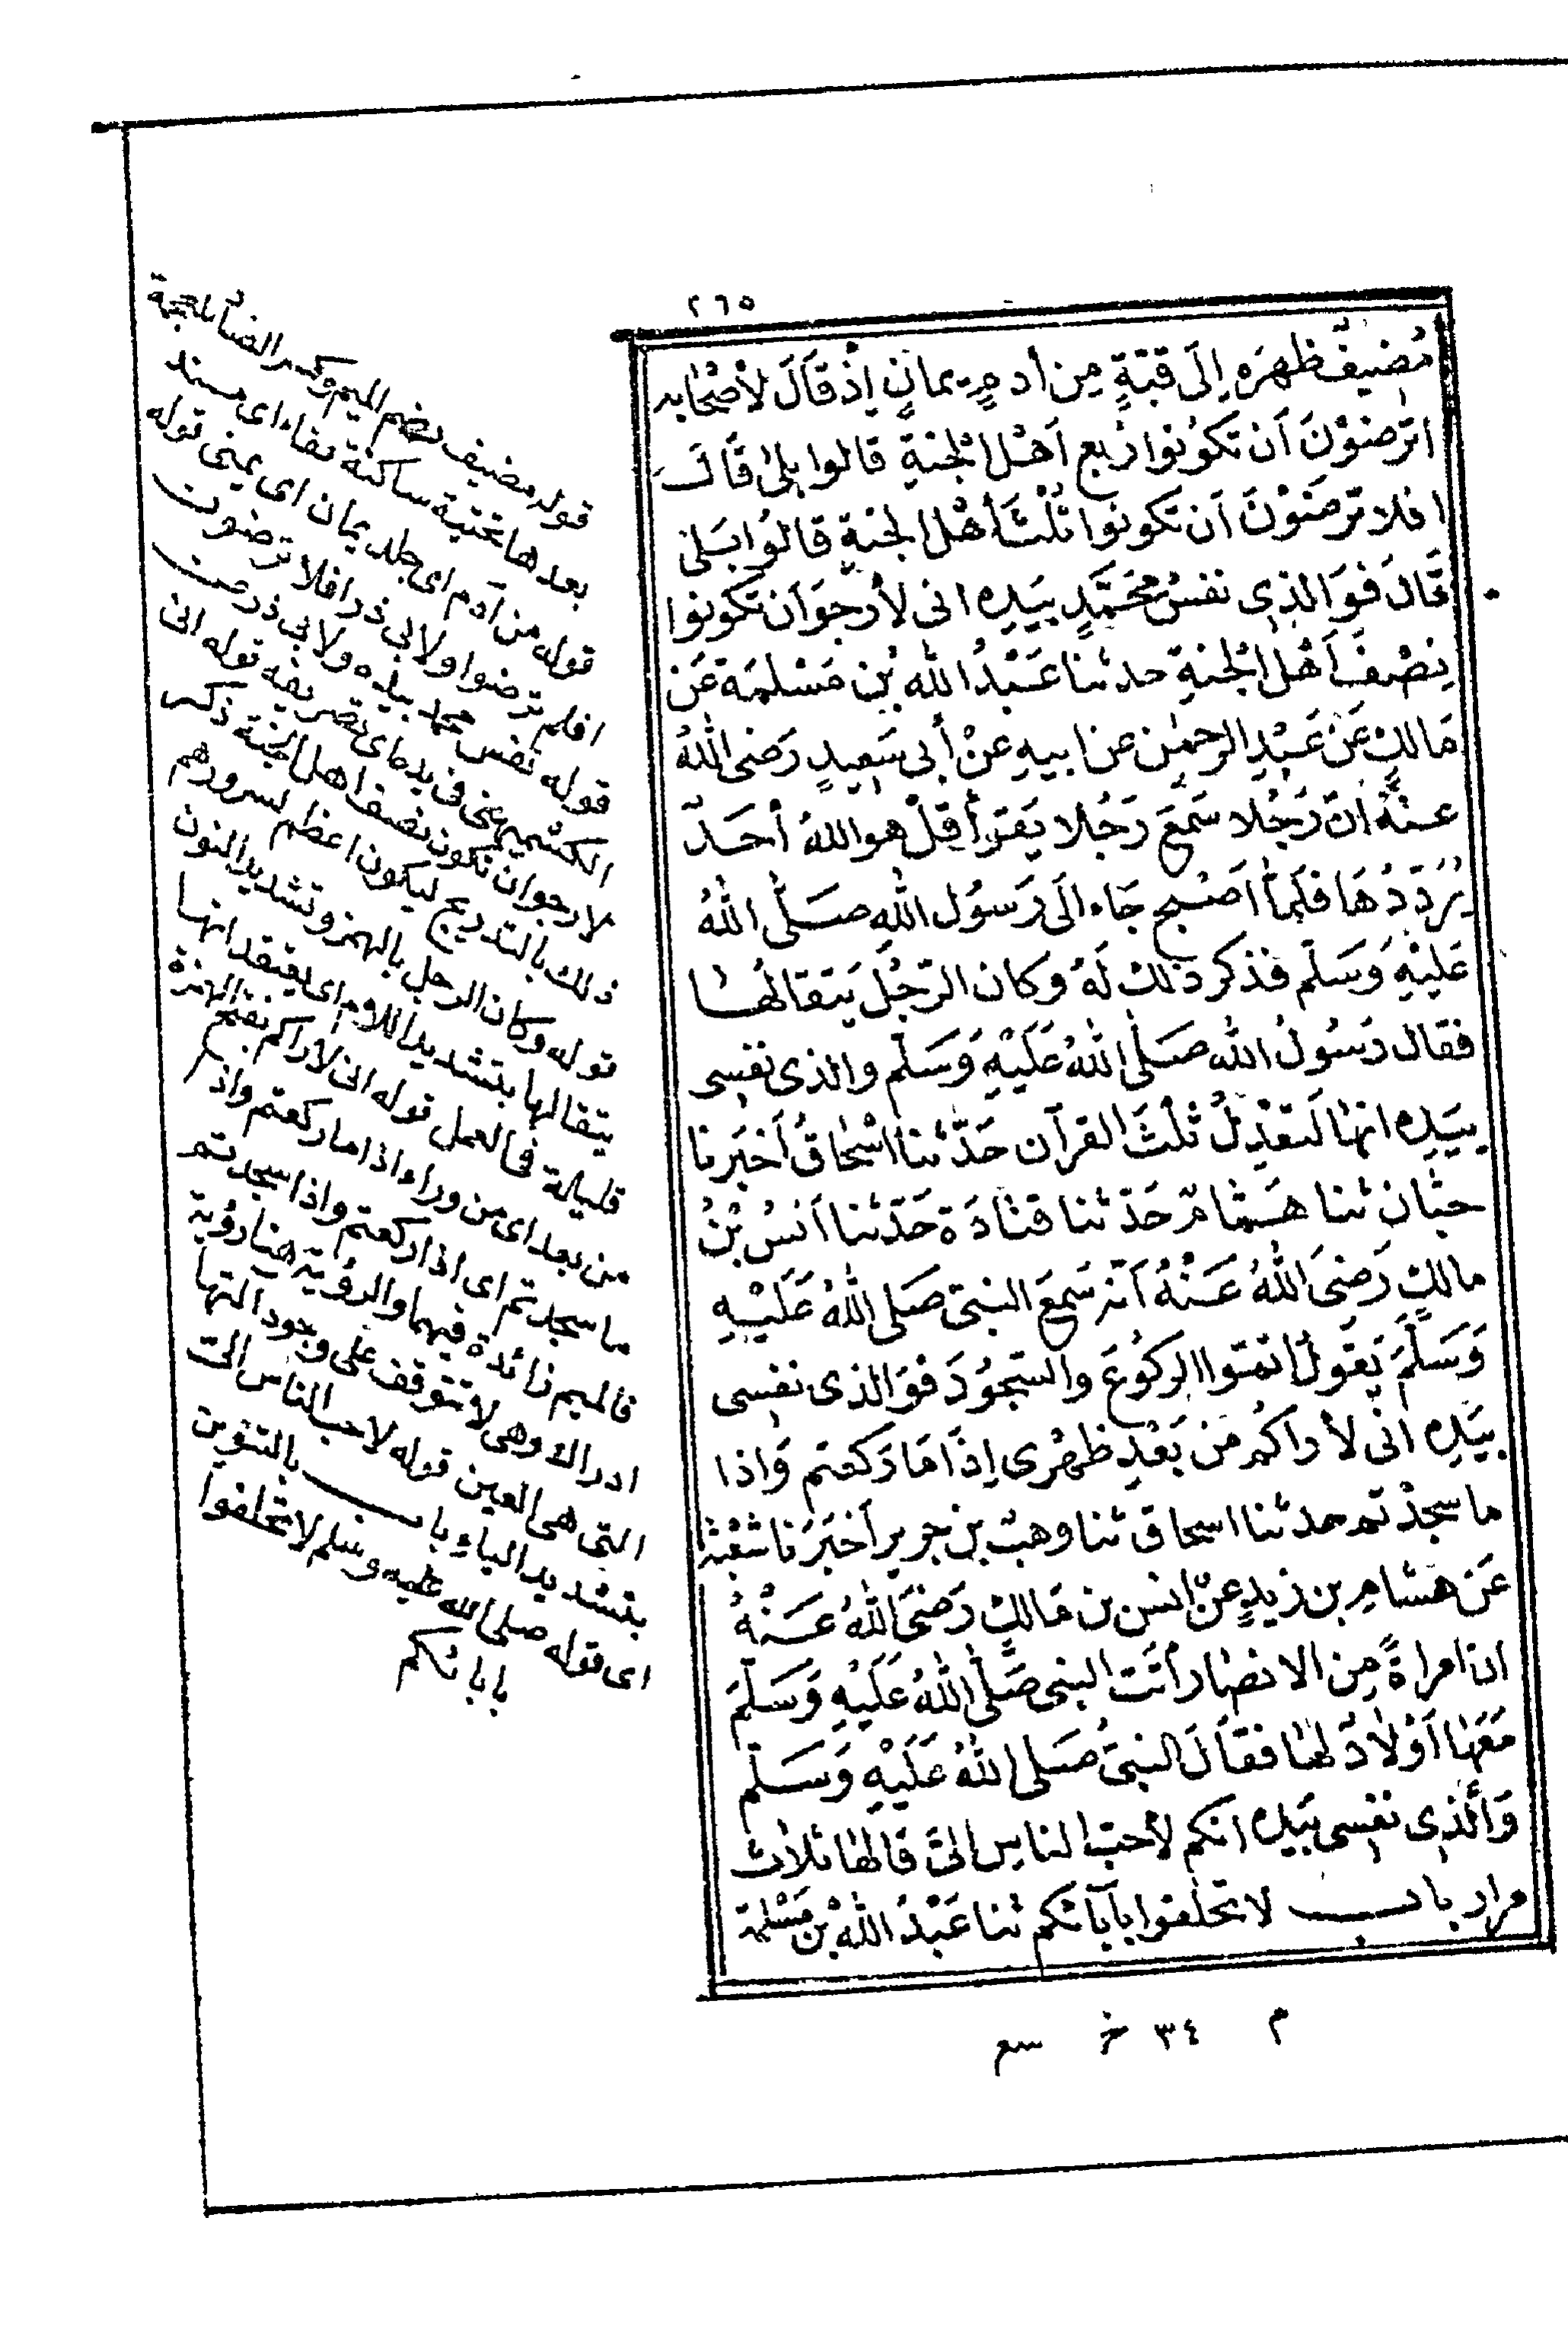 ٢٦٥
مُضِيفٌ ظهرَه اِلَى قبّةٍ مِن أدمٍ يمانٍ إذ قَالَ لأصْحَابه
اترضَوْنَ أن تكوُنوا رُبع أهْل الجنةِ قالوا بلىٰ قَالَ
افلا ترضَوْنَ أن تكونوا ثلُثَ أهْل الجنةِ قالوُا بَلىٰ
قَالَ فوَالذِى نفسُ محَمَّدٍ بيَدِه انى لأرْجوَ أن تكونوا
نِصْفَ أهْل الجنةِ حدثنا عَبْدُ الله بْن مَسْلمَة عَن
مَالكٍ عَنْ عَبْدِ الرحمٰن عن ابيهِ عنْ أبى سَعيدٍ رَضى اللهُ
عنْهُ انّ رَجُلا سَمعَ رَجُلا يَقرأ قلْ هو اللهُ أحَدٌ
يُرَدّدُهَا فلَمّا اَصْبح جَاء الَى رَسوُل الله صَلّى اللهُ
عَليْهِ وَسَلّم فذكر ذلك لَهُ وكان الرّجُلَ يَتقالهُا
فقال رَسُولُ الله صَلّى اللهُ عَلَيْهِ وَسَلّم والذى نفسِى
بيَدِه انهٰا لَتعْدِلُ ثلُثَ القرآن حَدّثنا اسْحاقُ أخبَرنا
حبّان ثنا هَمّامٌ حَدّثنا قتادَة حَدّثنا اَنسُ بْنُ
مالكٍ رَضِىَ اللهُ عَنْهُ اَنّه سَمعَ النبىَّ صَلى اللهُ عَلَيْهِ
وَسَلّمَ يَقولُ اتمّوا الركوُعَ والسّجوُدَ فوَالذى نفسِى
بيَدِه انّى لأراكُم مِنْ بَعْدِ ظهْرى إذَا مَا رَكعتم وَاذا
ما سجدْتم حدثنا اسحاق ثنا وهبُ بن جرير أخبَرَنا شعْبَة
عَن هشامِ بن زيدٍ عنْ انسِ بن مَالكٍ رَضىَ اللهُ عَنْهُ
انّ امراةً مِن الانصَار أتَت النبى صَلّى اللهُ عَلَيْهِ وَسَلّمَ
مَعَهٰا اَوْلادٌ لهٰا فقَالَ النبىُّ صَلى اللهُ عَلَيْهِ وَسَلّم
وَالّذِى نفسِى بيَدِه انكم لأحبّ الناسِ الىَّ قالها ثلاث
مرار باب لا تحلفوا بآبآئكم ثنا عَبْدُ الله بْن مَسْلمة
م ٣٤ خ سع
قوله مضيف بضم الميم وكسر الضاد المعجمة
بعدها تحتية ساكنة ففاء اى مسند
قوله من ادم اى جلد يمان اى يمنى قوله
افلم ترضوا ولابى ذر افلا ترضون
قوله نفس محمد بيده ولابى ذر عن
الكشميهنى فى يده اى تصريفه قوله انى
لارجو ان تكون نصف اهل الجنة ذكر
ذلك بالتدريج ليكون اعظم لسرورهم
قوله وكان الرجل بالهمز وتشديد النون
يتقالها بتشديد اللام اى يعتقد انها
قليلة فى العمل قوله انى لأراكم بفتح الهمزة
من بعد اى من وراء اذا ما ركعتم واذا
ما سجدتم اى اذا ركعتم واذا سجدتم
فالميم زائدة فيهما والرؤية هنا رؤية
ادراك وهى لا تتوقف على وجود آلتها
التى هى العين قوله لاحب الناس الىّ
بتشديد الياء باب بالتنوين
اى قوله صلى الله عليه وسلم لا تحلفوا
بابائكم